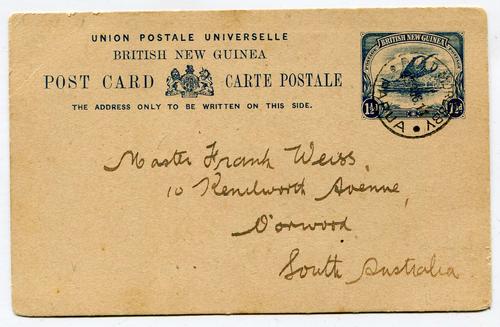 UNION POSTALE UNIVERSELLE
BRITISH NEW GUINEA
POST CARD CARTE POSTALE
THE ADDRESS ONLY TO BE WRITTEN ON THIS SIDE.
BRITISH NEW GUINEA
1½d 1½d
PAPUA
Master Frank Weiss,
10 Kenilworth Avenue
Norwood
South Australia